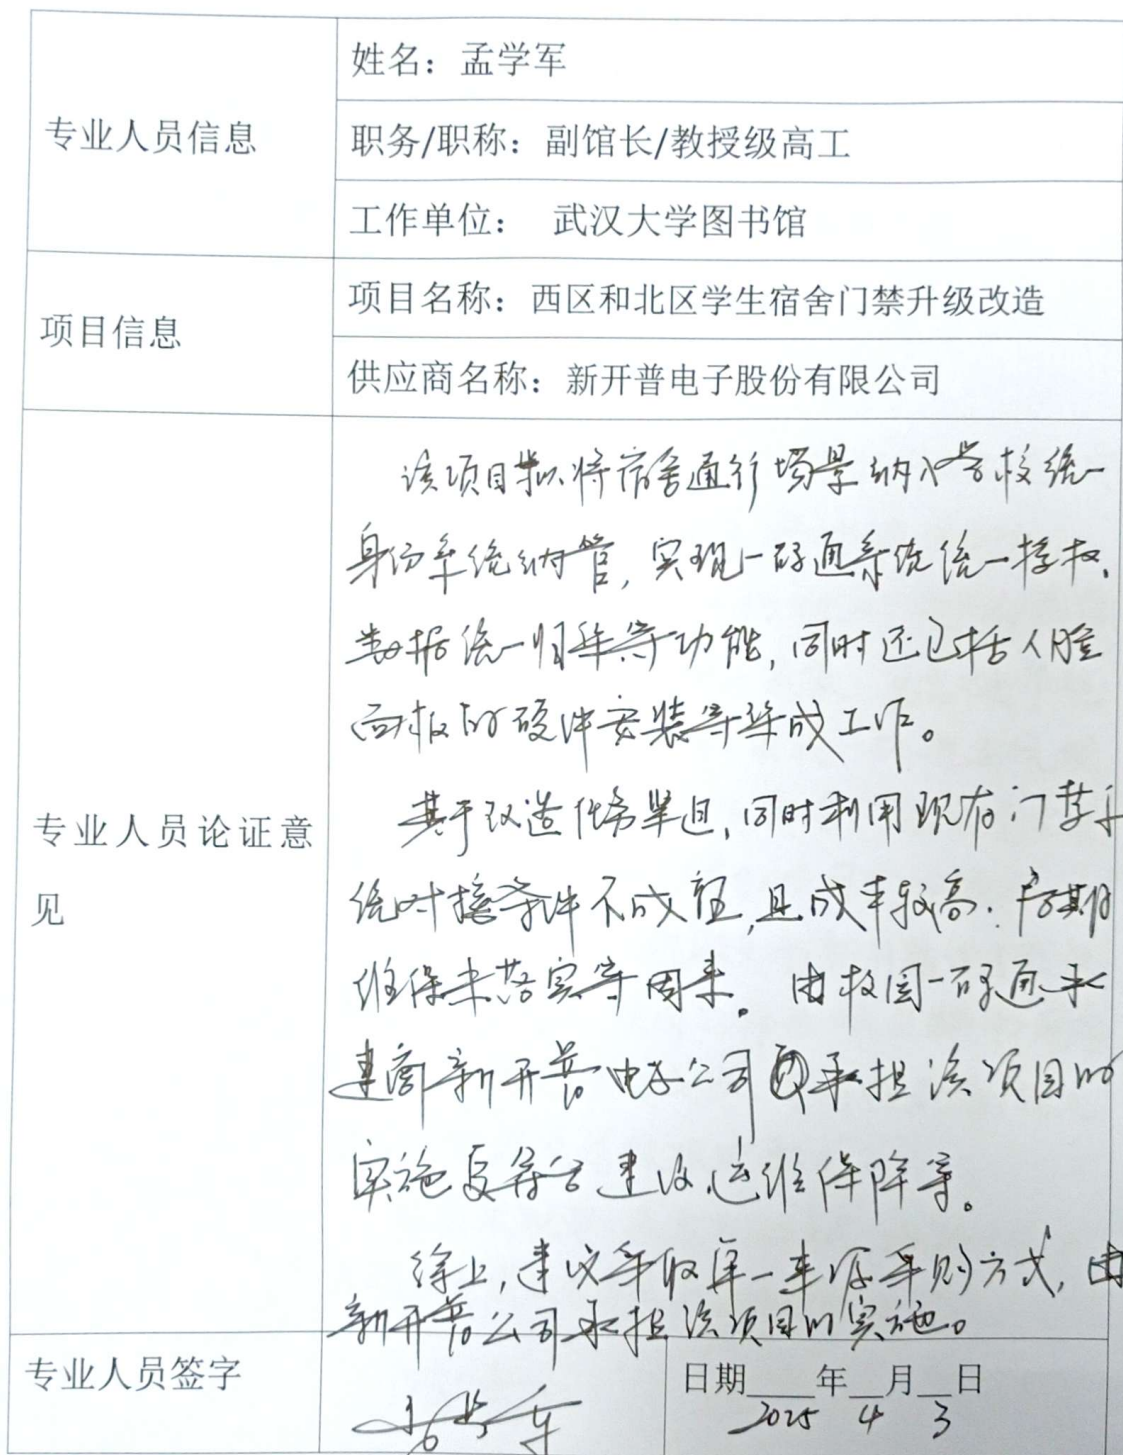 专业人员信息
姓名：孟学军
职务/职称：副馆长/教授级高工
工作单位： 武汉大学图书馆
项目信息
项目名称：西区和北区学生宿舍门禁升级改造
供应商名称：新开普电子股份有限公司
专业人员论证意
见
该项目拟将宿舍通行场景纳入学校统一
身份系统纳管，实现一码通系统统一授权、
数据统一归集等功能，同时还包括人脸
面板的硬件安装等集成工作。
基于改造任务紧迫，同时利用现有门禁系
统对接条件不成熟，且成本较高、后期
维保未落实等因素。由校园一码通承
建商新开普电子公司承担该项目的
实施更符合建设、运维保障等。
综上，建议采取单一来源采购方式，由
新开普公司承担该项目的实施。
专业人员签字
孟学军
日期 2025 年 4 月 3 日